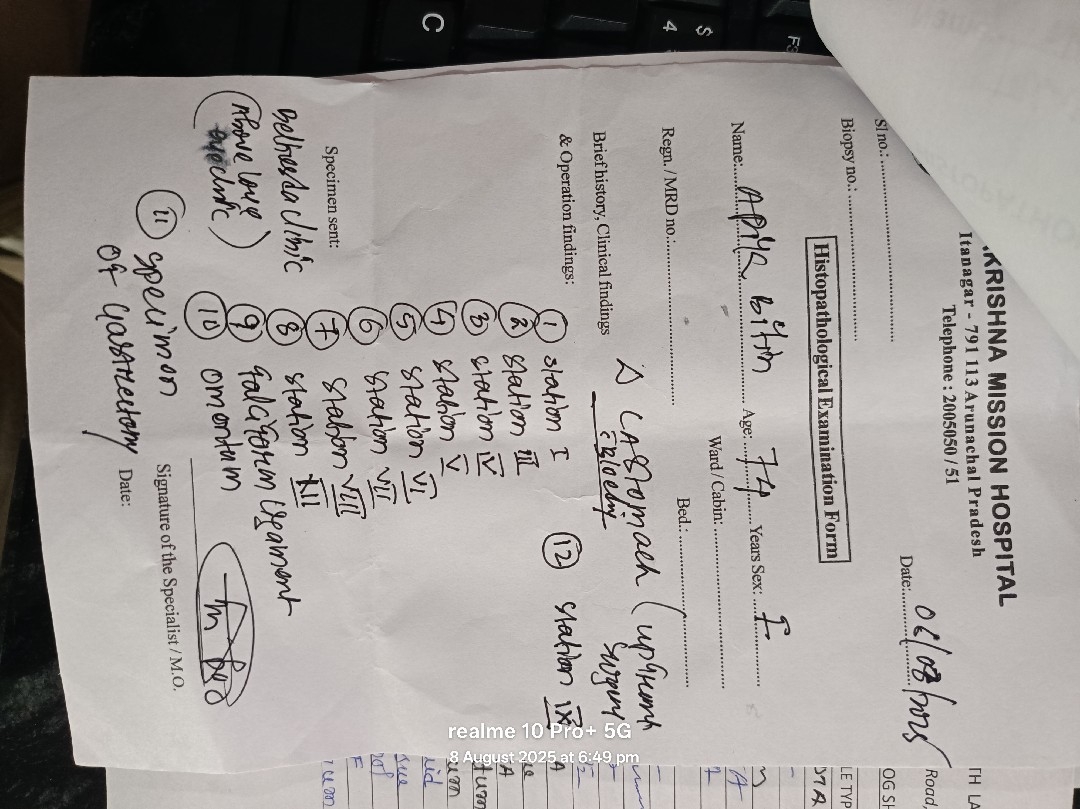 KRISHNA MISSION HOSPITAL
Itanagar - 791 113 Arunachal Pradesh
Telephone : 2005050 / 51
Sl no.:
Date: 06/08/2025
Biopsy no.:
Histopathological Examination Form
Name: Age: 74 Years Sex: F
Regn. / MRD no.: Ward / Cabin: Bed.:
Brief history, Clinical findings
& Operation findings:
Δ CA Stomach (upfront
surgery
① Station I
② Station III
③ Station IV
④ Station V
⑤ Station VI
⑥ Station VII
⑦ Station VIII
⑧ Station XII
⑨ Falciform ligament
⑩ omentum
⑪ Specimen
of Gastrectomy
⑫ Station IX
Specimen sent:
Bethesda clinic
(Above
Signature of the Specialist / M.O.
Date:
C
$
4
realme 10 Pro+ 5G
8 August 2025 at 6:49 pm